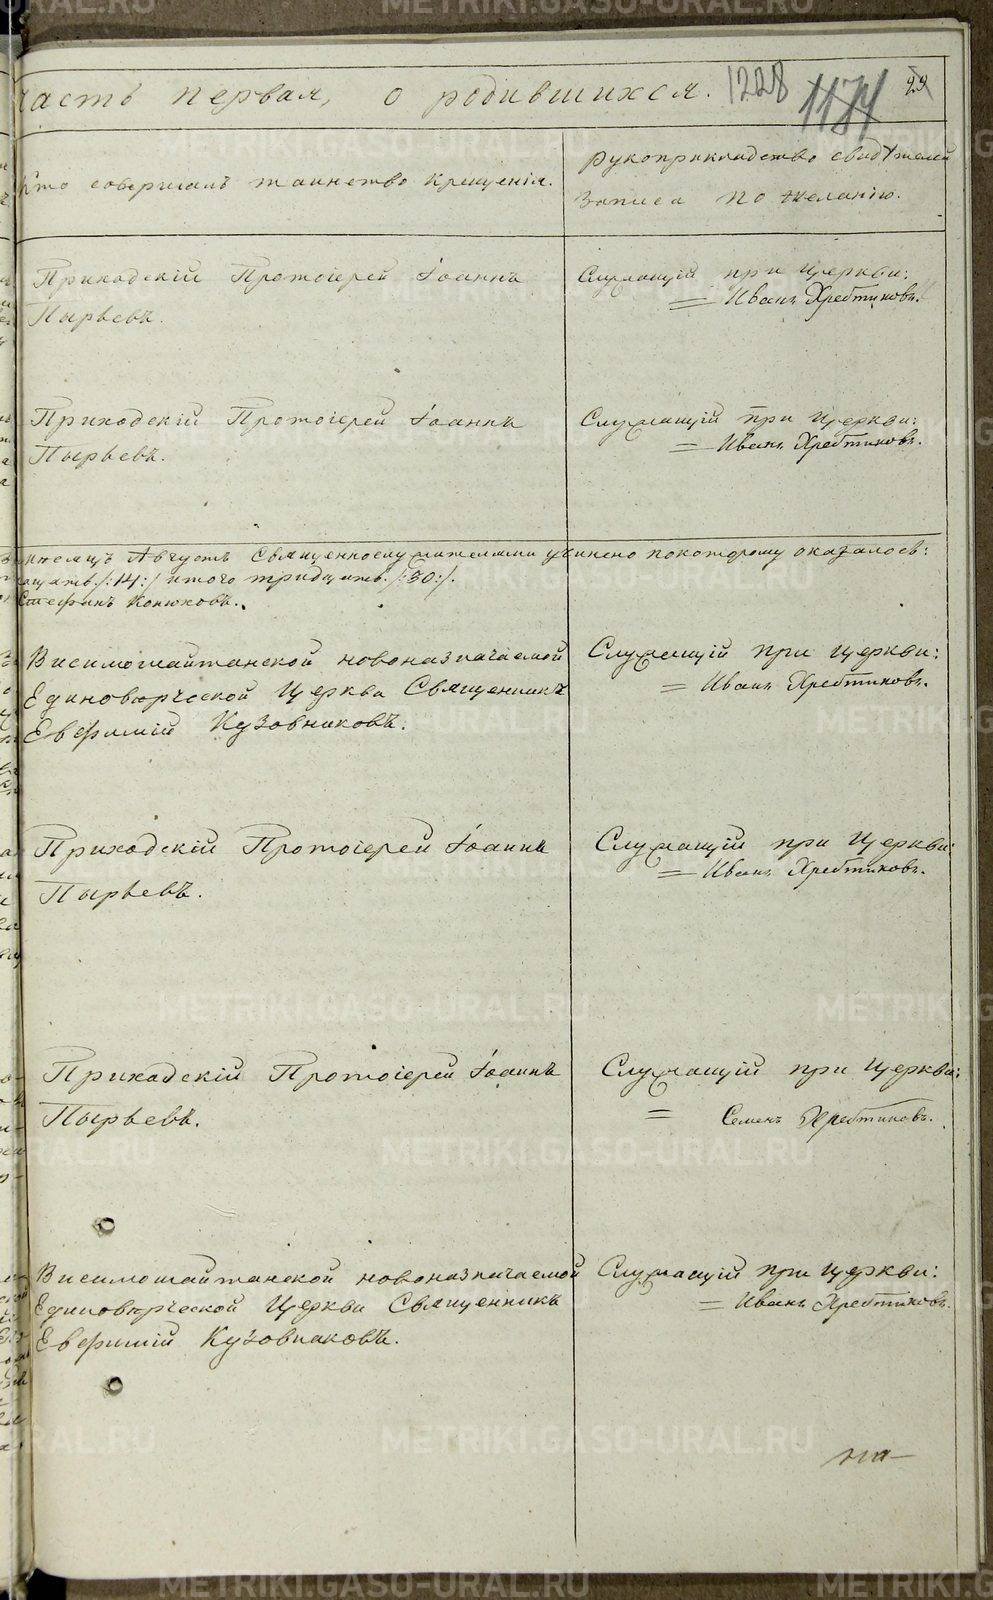 часть первая, о родившихся. 1228 1174 29
Кто совершалъ таинство крещенія.
рукоприкладство свидѣтелей
записа по желанію.
Приходскій Протоіерей Іоаннъ
Пырьевъ.
Служащій при церкви:
= Иванъ Хребтиковъ.
Приходскій Протоіерей Іоаннъ
Пырьевъ.
Служащій при церкви:
= Иванъ Хребтиковъ.
мѣсяцъ Августъ Священнослужителями учинено покоторому оказалось:
/:14:/ итого тридцать. /:30:/.
Стефанъ Конюховъ.
Висимошайтанской новоназначаемой
Единовѣрческой Церкви Священникъ
Евфимій Кузовниковъ.
Служащій при церкви:
= Иванъ Хребтиковъ.
Приходскій Протоіерей Іоаннъ
Пырьевъ.
Служащій при Церкви:
= Иванъ Хребтиковъ.
Приходскій Протоіерей Іоаннъ
Пырьевъ.
Служащій при Церкви:
= Семенъ Хребтиковъ.
Висимошайтанской новоназначаемой
Единовѣрческой Церкви Священникъ
Евфимій Кузовниковъ.
Служащій при церкви:
= Иванъ Хребтиковъ.
на-
METRIKI.GASO-URAL.RU